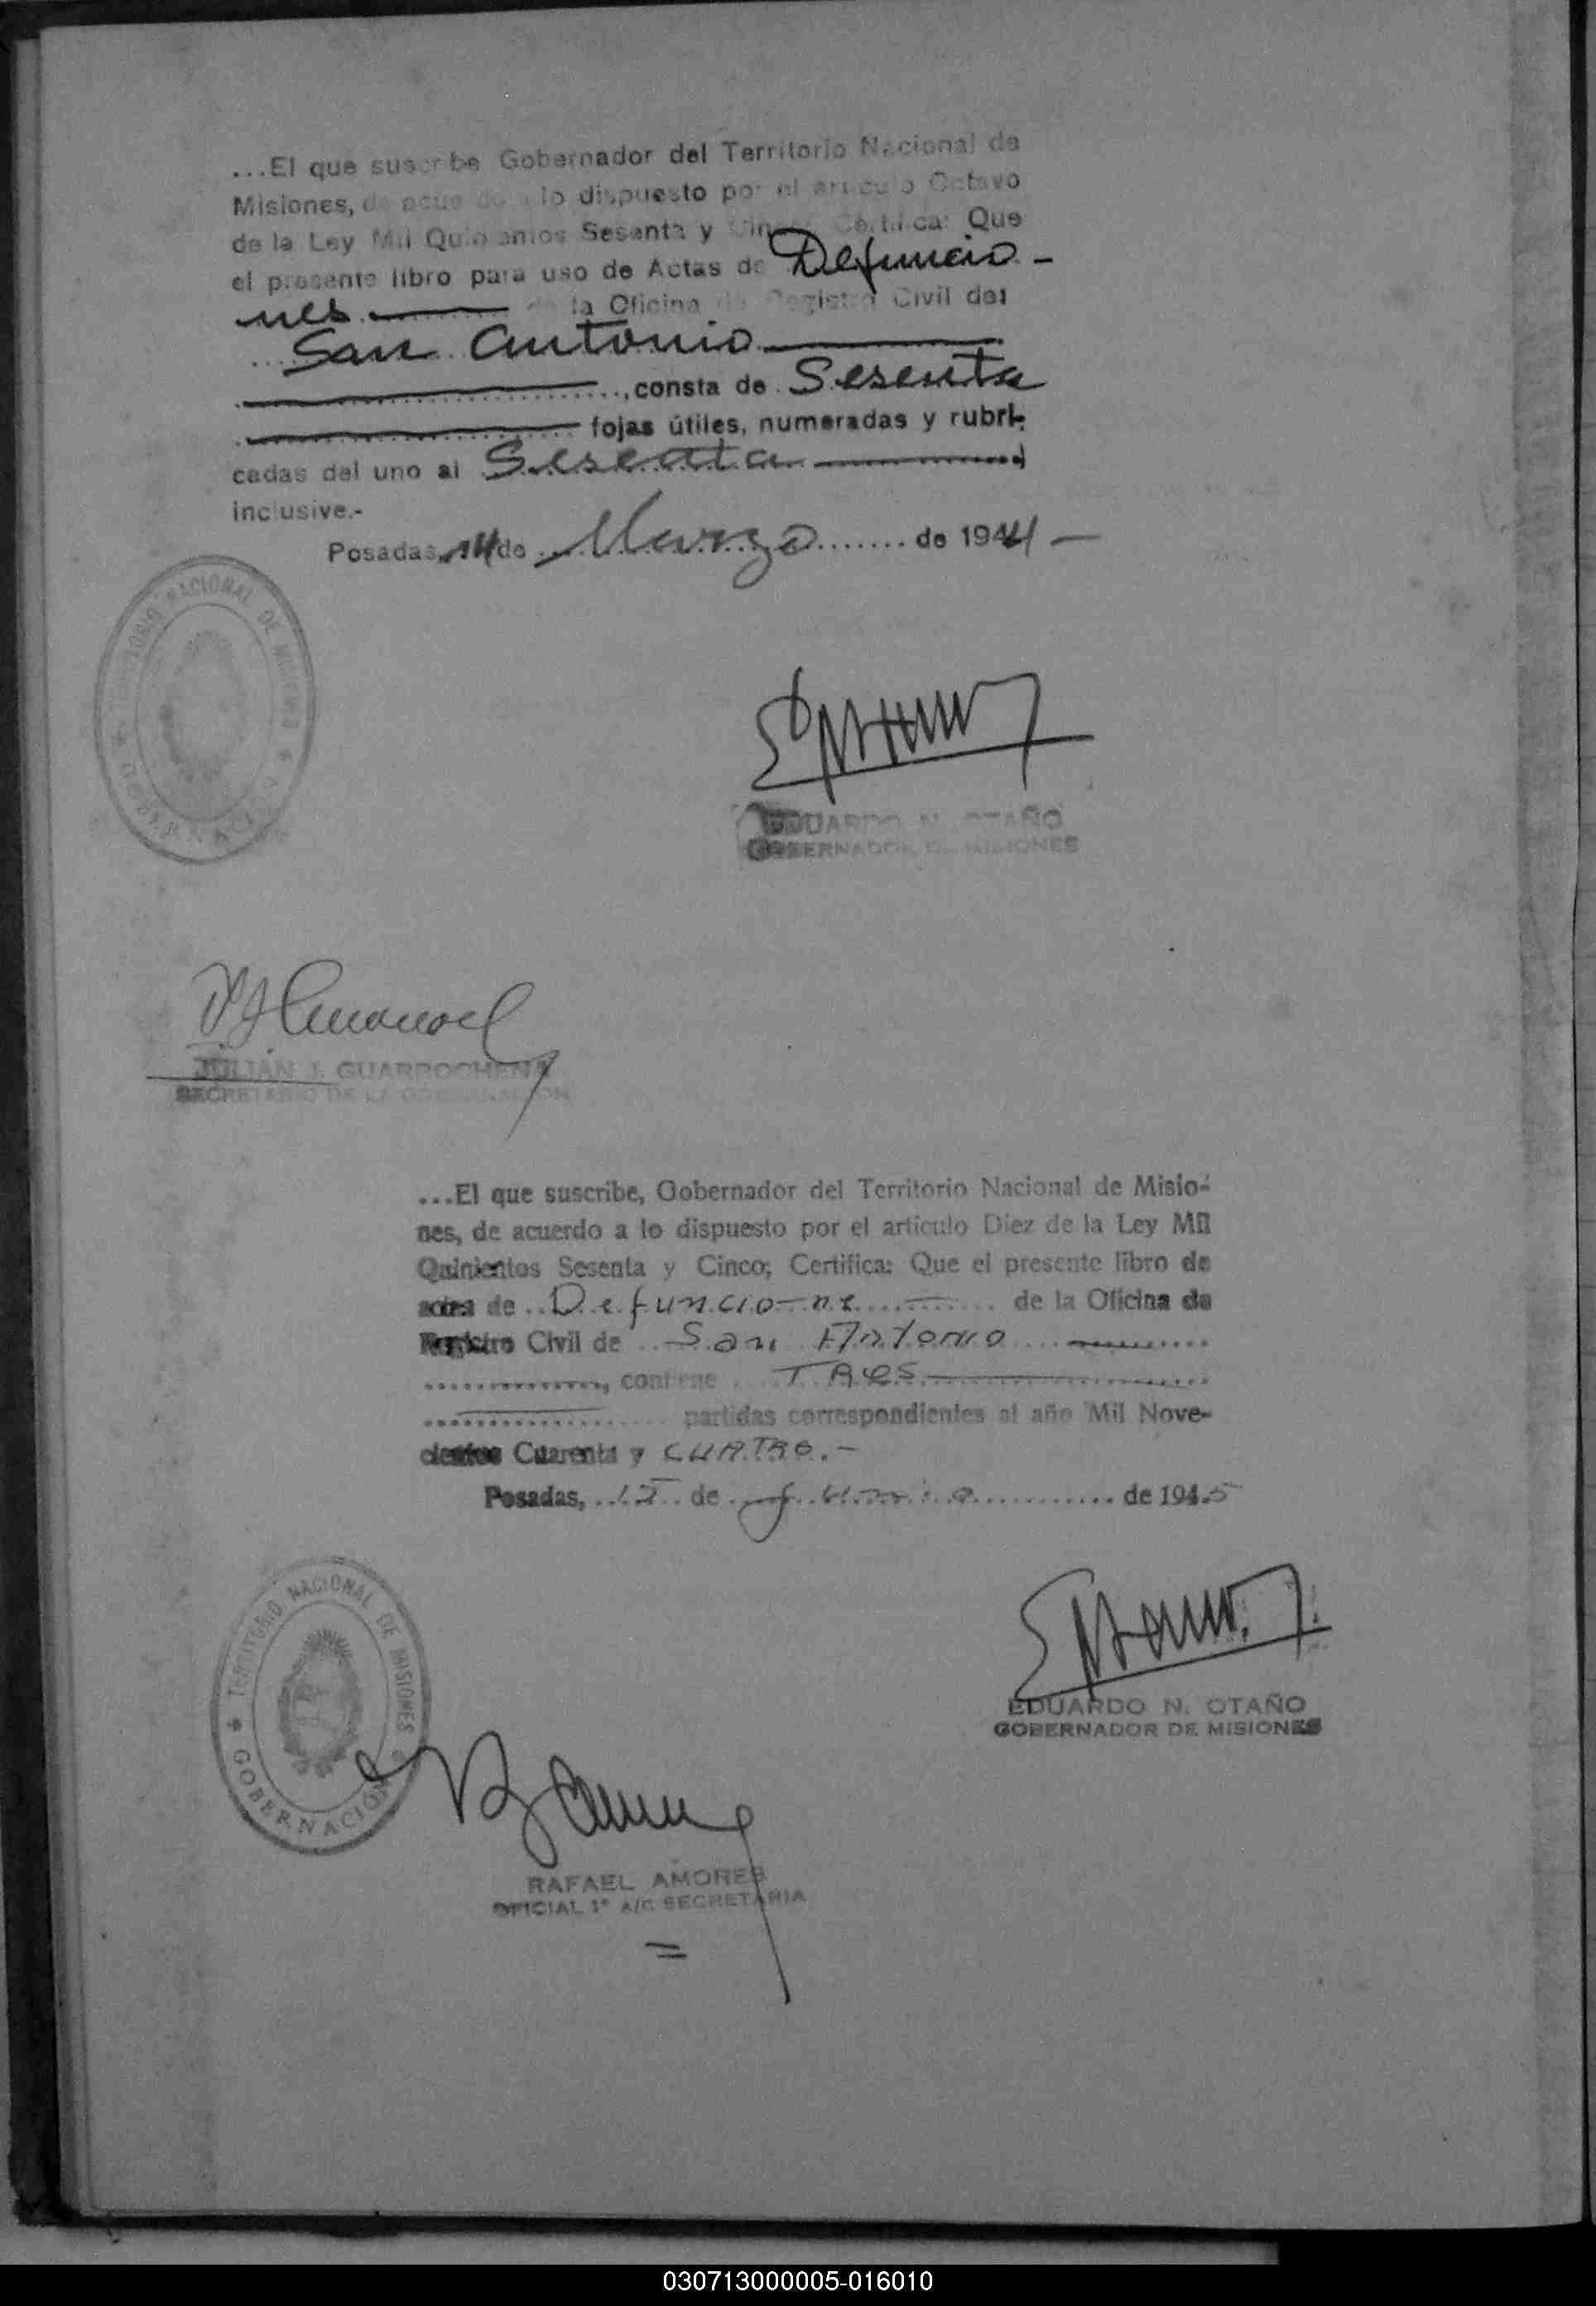 ...El que suscribe Gobernador del Territorio Nacional de
Misiones, de acuerdo a lo dispuesto por el articulo Octavo
de la Ley Mil Quinientos Sesenta y Cinco, Certifica: Que
el presente libro para uso de Actas de Defuncio-
nes de la Oficina de Registro Civil del
San Antonio
, consta de Sesenta
fojas útiles, numeradas y rubri-
cadas del uno al Sesenta
inclusive.-
Posadas, 14 de Marzo de 1944
TERRITORIO NACIONAL DE MISIONES
GOBERNACION
EDUARDO N. OTAÑO
GOBERNADOR DE MISIONES
JULIÁN J. GUARROCHENA
SECRETARIO DE LA GOBERNACION
...El que suscribe, Gobernador del Territorio Nacional de Misio-
nes, de acuerdo a lo dispuesto por el articulo Diez de la Ley Mil
Quinientos Sesenta y Cinco; Certifica: Que el presente libro de
actas de Defuncione de la Oficina de
Registro Civil de San Antonio
, contiene TRES
partidas correspondientes al año Mil Nove-
cientos Cuarenta y CUATRO.-
Posadas, de Junio de 1945
TERRITORIO NACIONAL DE MISIONES
GOBERNACION
EDUARDO N. OTAÑO
GOBERNADOR DE MISIONES
RAFAEL AMORES
OFICIAL 1° A/C SECRETARIA
030713000005-016010